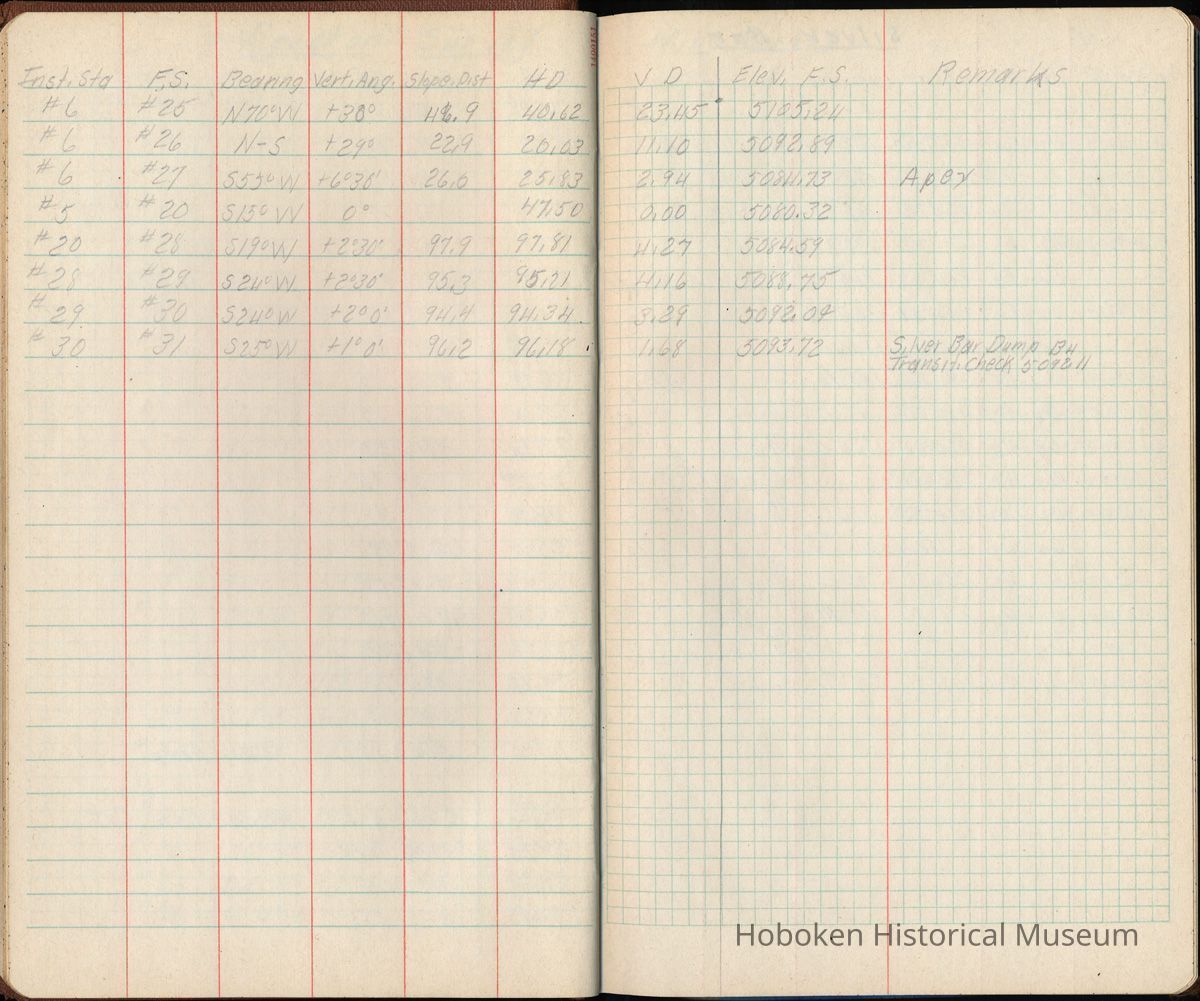 Inst. Sta F.S. Bearing Vert. Ang. Slope. Dist H D V D Elev. F.S. Remarks
#6 #25 N70°W +30° 46.9 40.62 23.45 5105.24
#6 #26 N-S +29° 22.9 20.03 11.10 5092.89
#6 #27 S55°W +6°30' 26.0 25.83 2.94 5084.73 Apex
#5 #20 S15°W 0° 47.50 0.00 5080.32
#20 #28 S19°W +2°30' 97.9 97.81 4.27 5084.59
#28 #29 S24°W +2°30' 95.3 95.21 4.16 5088.75
#29 #30 S24°W +2°0' 94.4 94.34 3.29 5092.04
#30 #31 S25°W +1°0' 96.2 96.18 1.68 5093.72 Silver Bar Dump By
Transit. Check
Hoboken Historical Museum